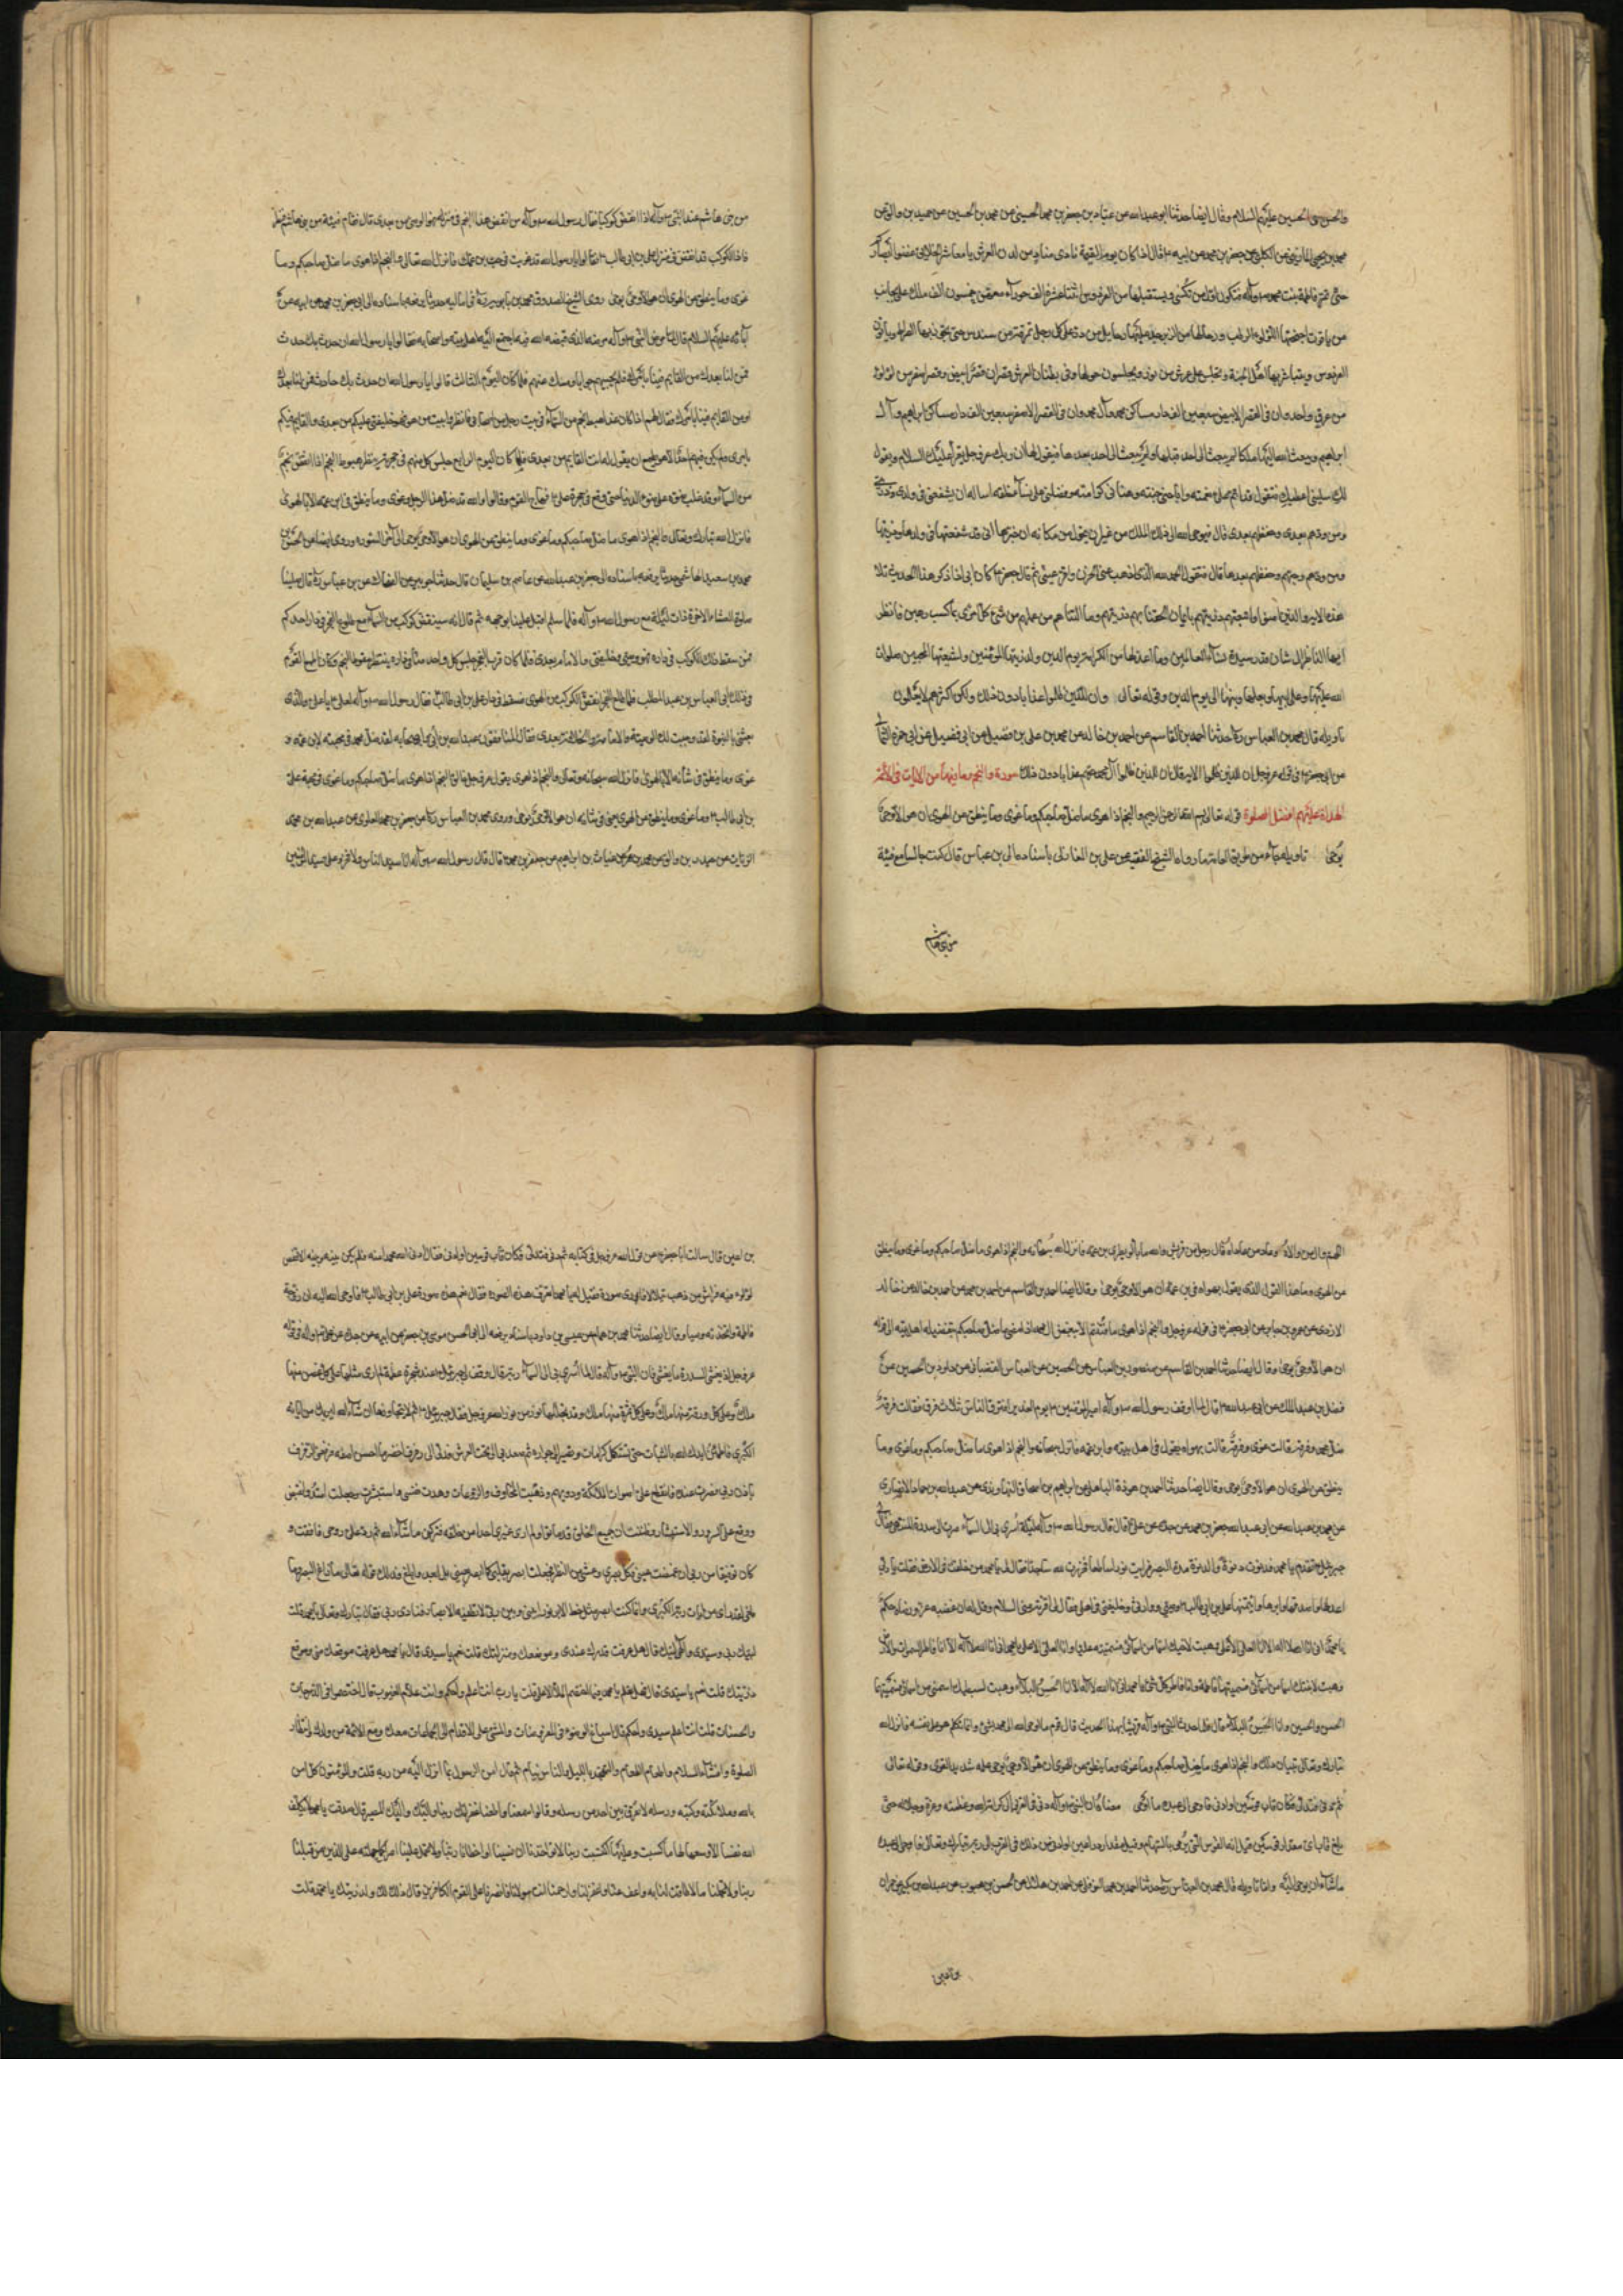 والحسن بن الحسين عليهم السلام وقال ايضا حدثنا ابو عبدالله جعفر بن محمد الحسيني عن محمد بن الحسين عن حميد بن والق عن
محمد بن يحيى المازني عن الكلبي عن جعفر بن محمد عن ابيه ع قال اذا كان يوم القيمة نادى مناد من لدن العرش يا معاشر الخلايق غضوا ابصاركم
حتى تمر فاطمة بنت محمد ص وآله فتكون اول من تكسى ويستقبلها من الفردوس اثنتا عشرة الف حوراء معهن خمسون الف ملك على نجايب
من ياقوت اجنحتها اللؤلؤ الرطب من زبرجد عليها رحايل من در على كل رحل نمرقة من سندس حتى تجوز بها الصراط ويأتون
الفردوس ويتباشر بها اهل الجنة وتجلس على عرش من نور ويجلسون حولها وفي بطنان العرش قصران قصر ابيض وقصر اصفر من لؤلؤ
من عرق واحد وان في القصر الابيض سبعين الف دار مساكن محمد وآل محمد وان في القصر الاصفر سبعين الف دار مساكن ابراهيم وآل
ابراهيم ويبعث الله اليها ملكا لم يبعث الى احد قبلها ولم يبعث الى احد بعدها فيقول لها ان ربك عز وجل يقرأ عليك السلام ويقول
لك سليني اعطيك فتقول قد اتم علي نعمته واباحني جنته وهناني كرامته وفضلني على نساء خلقه اساله ان يشفعني في ولدي وذريتي
ومن ودهم بعدي وحفظهم بعدي قال فيوحي الله الى ذلك الملك من غير ان يتحول من مكانه ان خبرها اني قد شفعتها في ولدها وذريتها
ومن ودهم واحبهم وحفظهم بعدها قال فتقول الحمد لله الذي اذهب عني الحزن واقر عيني ثم قال جعفر ع كان ابي اذا ذكر هذا الحديث تلا
هذه الاية والذين آمنوا واتبعتهم ذريتهم بايمان الحقنا بهم ذريتهم وما التناهم من عملهم من شئ كل امرئ بما كسب رهين فانظر
ايها الناظر الى شان قدر سيدة نساء العالمين وما اعد لها من الكرامة يوم الدين ولذريتها المؤمنين ولشيعتها المحبين صلوات
الله عليها وعلى ابيها وبعلها وبنيها الى يوم الدين وقوله تعالى وان للذين ظلموا عذابا دون ذلك ولكن اكثرهم لا يعلمون
تاويله قال محمد بن العباس ره حدثنا احمد بن القاسم عن احمد بن خالد عن محمد بن علي عن بن فضيل عن ابي حمزة الثمالي
عن ابي جعفر ع في قوله عز وجل ان للذين ظلموا الاية قال ان للذين ظلموا آل محمد حقهم عذابا دون ذلك سورة والنجم وما فيها من الايات في الائمة
الهداة عليهم افضل الصلوة قوله تعالى بسم الله الرحمن الرحيم والنجم اذا هوى ما ضل صاحبكم وما غوى وما ينطق عن الهوى ان هو الا وحي
يوحى تاويله جاء من طريق العامة ما رواه الشيخ الفقيه علي بن المغازلي باسناده الى بن عباس قال كنت جالسا مع فتية
من بني هاشم
من بني هاشم عند النبي ص وآله اذا انقض كوكب فقال رسول الله ص وآله من انقض هذا النجم في منزله فهو الوصي من بعدي قال فقام فتية من بني هاشم فنظروا
فاذا الكوكب قد انقض في منزل علي بن ابي طالب ع فقالوا يا رسول الله قد غويت في حب بن عمك فانزل الله تعالى والنجم اذا هوى ما ضل صاحبكم وما
غوى وما ينطق عن الهوى ان هو الا وحي يوحى روى الشيخ الصدوق محمد بن بابويه ره في اماليه حديثا يرفعه باسناده الى ابي جعفر بن محمد عن ابيه عن
آبائه عليهم السلام قال لما مرض النبي ص وآله مرضه الذي قبضه الله فيه اجتمع اليه اهل بيته واصحابه فقالوا يا رسول الله ان حدث بك حدث
فمن لنا بعدك من القايم فينا بامرك فلم يجبهم جوابا وسكت عنهم فلما كان اليوم الثالث قالوا يا رسول الله ان حدث بك حادث فمن لنا بعدك
ومن القايم فينا بامرك فقال لهم اذا كان غدا هبط نجم من السماء في بيت رجل من اصحابي فانظروا من هو فهو خليفتي عليكم من بعدي والقايم فيكم
بامري ولم يكن فيهم احد الا وهو يطمع ان يقول له انت القايم من بعدي فلما كان اليوم الرابع جلس كل منهم في حجرته ينتظر هبوط النجم اذا انقض نجم
من السماء وقد غلب ضوءه على ضوء الدنيا حتى وقع في حجرة علي ع فهاج القوم وقالوا والله قد ضل هذا الرجل وغوى وما ينطق في ابن عمه الا بالهوى
فانزل الله تبارك وتعالى والنجم اذا هوى ما ضل صاحبكم وما غوى وما ينطق عن الهوى ان هو الا وحي يوحى الى آخر السورة وروى ايضا عن الحسن بن
محمد بن سعيد الهاشمي حديثا يرفعه باسناده الى جعفر بن عبدالله عن عاصم بن سليمان قال حدثنا جويبر عن الضحاك عن بن عباس ره قال صلينا
صلوة العشاء الاخرة ذات ليلة مع رسول الله ص وآله فلما سلم اقبل علينا بوجهه ثم قال انه سينقض كوكب من السماء مع طلوع الفجر في دار احدكم
فمن سقط ذلك الكوكب في داره فهو وصيي وخليفتي والامام بعدي فلما كان قرب الفجر جلس كل واحد منا في داره ينتظر سقوط النجم وكان اطمع القوم
في ذلك ابي العباس بن عبد المطلب فلما طلع الفجر انقض الكوكب من الهوى فسقط في دار علي بن ابي طالب ع فقال رسول الله ص وآله لعلي ع يا علي والذي
بعثني بالنبوة لقد وجبت لك الوصية والامامة والخلافة بعدي فقال المنافقون عبدالله بن ابي واصحابه لقد ضل محمد في محبته لابن عمه و
غوى وما ينطق في شأنه الا بالهوى فانزل الله سبحانه وتعالى والنجم اذا هوى يقول عز وجل وخالق النجم اذا هوى ما ضل صاحبكم وما غوى في محبة علي
بن ابي طالب ع وما غوى وما ينطق عن الهوى يعني في شانه ان هو الا وحي يوحى وروى محمد بن العباس ره عن جعفر بن محمد العلوي عن عبدالله بن محمد
الزيات عن جندل بن والق عن محمد بن عمر عن غياث بن ابراهيم عن جعفر بن محمد ع قال قال رسول الله ص وآله انا سيد الناس ولا فخر وعلي سيد المؤمنين
اللهم وال من والاه وعاد من عاداه فقال رجل من قريش والله ما يالو يطري بن عمه فانزل الله سبحانه والنجم اذا هوى ما ضل صاحبكم وما غوى وما ينطق
عن الهوى وما هذا القول الذي يقول بهواه في بن عمه ان هو الا وحي يوحى وقال ايضا احمد بن القاسم عن احمد بن محمد عن احمد بن خالد عن خالد
الازدي عن عمرو عن جابر عن ابي جعفر ع في قوله عز وجل والنجم اذا هوى ما فتنتم الا ببغض آل محمد اذا مضى ما ضل صاحبكم بتفضيله اهل بيته الى قوله
ان هو الا وحي يوحى وقال ايضا حدثنا احمد بن القاسم عن منصور بن العباس عن الحصين عن العباس القصباني عن داود بن الحصين عن
فضل بن عبد الملك عن ابي عبدالله ع قال لما اوقف رسول الله ص وآله امير المؤمنين ع يوم الغدير افترق الناس ثلاث فرق فقالت فرقة
ضل محمد وفرقة قالت غوى وفرقة قالت بهواه يقول في اهل بيته وابن عمه فانزل سبحانه والنجم اذا هوى ما ضل صاحبكم وما غوى وما
ينطق عن الهوى ان هو الا وحي يوحى وقال ايضا حدثنا احمد بن هوذة الباهلي عن ابراهيم بن اسحاق النهاوندي عن عبدالله بن حماد الانصاري
عن محمد بن عبدالله عن ابي عبدالله جعفر بن محمد عن جده عن علي ع قال قال رسول الله ص وآله ليلة اسري بي الى السماء صرت الى سدرة المنتهى فقال لي
جبرئيل تقدم يا محمد فدنوت دنوة والدنوة مد البصر فرايت نورا ساطعا فخررت لله ساجدا فقال لي يا محمد من خلفت في الارض فقلت يا ربي
اعدلها واصدقها وابرها وآمنها علي بن ابي طالب ع وصيي ووارثي وخليفتي في اهلي فقال لي اقرئه مني السلام وقل له ان غضبه عز ورضاه حكم
يا محمد اني انا الله لا اله الا انا العلي الاعلى وهبت لاخيك اسما من اسمائي فسميته عليا وانا العلي الاعلى يا محمد اني انا الله لا اله الا انا فاطر السموات والارض
وهبت لابنتك اسما من اسمائي فسميتها فاطمة وانا فاطر كل شئ يا محمد اني انا الله لا اله الا انا الحسن البلاء وهبت لسبطيك اسمين من اسمائي فسميتهما
الحسن والحسين وانا الحسن البلاء قال فلما حدث النبي ص وآله قريشا بهذا الحديث قال قوم ما اوحى الله الى محمد بشئ وانما تكلم هو عن نفسه فانزل الله
تبارك وتعالى تبيان ذلك والنجم اذا هوى ما ضل صاحبكم وما غوى وما ينطق عن الهوى ان هو الا وحي يوحى علمه شديد القوى وقوله تعالى
ثم دنى فتدلى فكان قاب قوسين او ادنى فاوحى الى عبده ما اوحى معناه ان النبي ص وآله دنى في القرب الى كرامة الله وعظمته وعزه وجلاله حتى
بلغ قاب اي مقدار قوسين قيل انه القوس التي يرمى بها السهام وقيل مقدار ذراعين او ادنى من ذلك في القرب الى ربه تبارك وتعالى فاوحى الى عبده
ما شاء ان يوحى اليه واما تاويله قال محمد بن العباس ره حدثنا احمد بن محمد النوفلي عن احمد بن هلال عن الحسن بن محبوب عن عبدالله بن بكير عن حمران
بن اعين قال سالت ابا جعفر ع عن قول الله عز وجل في كتابه ثم دنى فتدلى فكان قاب قوسين او ادنى فقال ادنى الله محمدا منه فلم يكن بينه وبينه الا قفص
لؤلؤ فيه فراش من ذهب يتلالا فاري صورة فقيل له يا محمد اتعرف هذه الصورة فقال نعم هذه صورة علي بن ابي طالب ع فاوحى الله اليه ان زوجه
فاطمة واتخذه وصيا وقال ايضا حدثنا محمد بن همام عن عيسى بن داود باسناده يرفعه الى ابي الحسن موسى بن جعفر عن ابيه عن جده عن علي ع في قوله
عز وجل اذ يغشى السدرة ما يغشى فان النبي ص وآله قال لما اسري بي الى السماء ربي قال وقف بي جبرئيل ع عند شجرة عظيمة لم ار مثلها على كل غصن منها
ملك وعلى كل ورقة منها ملك وعلى كل ثمرة منها ملك وقد تجللها نور من نور الله عز وجل فقال جبرئيل ع لم يتجاوزها ان شاء الله ليريك من آياته
الكبرى فاطمئن ايدك الله بالثبات حتى تستكمل كرامات وتصير الى جواره ثم صعد بي الى تحت العرش فدلي الى رفرف اخضر ما احسن اصفه فرفعني الرفرف
باذن ربي فصرت عنده وانقطع عني اصوات الملائكة ودويهم وذهبت المخاوف والروعات وهدت نفسي واستبشرت وجعلت امتد وانقبض
ووقع علي السرور والاستبشار وظننت ان جميع الخلق قد ماتوا ولم ار غيري احدا من خلقه فتركني ما شاء الله ثم رد علي روحي فافقت و
كان توفيقا من ربي ان غمضت عيني وكل بصري وغشي عن النظر فجعلت ابصر بقلبي كما ابصر بعيني بل ابعد وابلغ وذلك قوله تعالى ما زاغ البصر وما
طغى لقد راى من ايات ربه الكبرى وانما كنت ابصر مثل خيط الابر نورا بيني وبين ربي لا تطيقه الابصار فناداني ربي فقال تبارك وتعالى يا محمد قلت
لبيك ربي وسيدي والهي لبيك قال هل عرفت قدرك عندي وموضعك ومنزلتك قلت نعم يا سيدي قال يا محمد هل عرفت موقعك مني وموقع
ذريتك قلت نعم يا سيدي قال فهل تعلم يا محمد فيما اختصم الملا الاعلى قلت يا رب انت اعلم واحكم وانت علام الغيوب قال اختصموا في الدرجات
والحسنات قلت انت اعلم سيدي واحكم قال اسباغ الوضوء في المفروضات والمشي على الاقدام الى الجماعات معك ومع الائمة من ولدك وانتظار
الصلوة وافشاء السلام واطعام الطعام والتهجد بالليل والناس نيام ثم قال امن الرسول بما انزل اليه من ربه قلت والمؤمنون كل امن
بالله وملائكته وكتبه ورسله لا نفرق بين احد من رسله وقالوا سمعنا واطعنا غفرانك ربنا واليك المصير قال صدقت يا محمد لا يكلف
الله نفسا الا وسعها لها ما كسبت وعليها ما اكتسبت ربنا لا تؤاخذنا ان نسينا او اخطانا ربنا ولا تحمل علينا اصرا كما حملته على الذين من قبلنا
ربنا ولا تحملنا ما لا طاقة لنا به واعف عنا واغفر لنا وارحمنا انت مولانا فانصرنا على القوم الكافرين قال ذلك لك ولذريتك يا محمد قلت